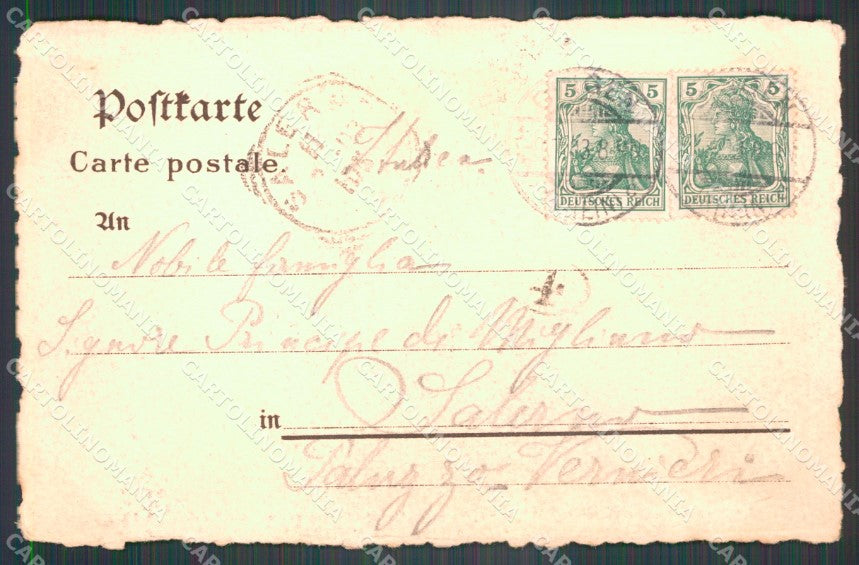 Postkarte
Carte postale.
SALER
5 5
DEUTSCHES REICH
5 5
DEUTSCHES REICH
An
Nobile famiglia
Signore Principe di Migliano
in Salerno
Palazzo Vernieri
CARTOLINOMANIA